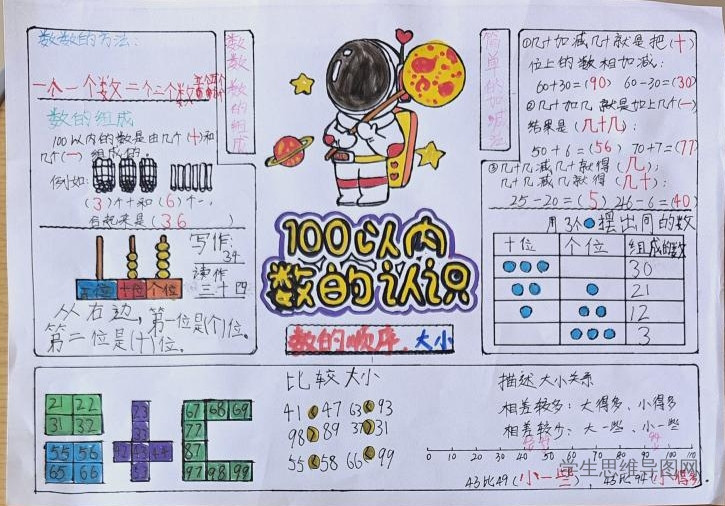 数数的方法:
一个一个数 二个二个数
数的组成
100以内的数是由几个(十)和
几个(一)组成的。
例如:
(3)个十和(6)个一,
合起来是(36)
写作:
34
读作
三十四
百位 十位 个位
从右边,第一位是(个)位。
第二位是(十)位。
数数 数的组成
100以内
数的认识
数的顺序、大小
简单的加减法
①几十加减几十就是把(十)
位上的数相加减:
60+30=(90) 60-30=(30)
②几十加几就是加上几个(一),
结果是(几十几):
50+6=(56) 70+7=(77)
③几十几减几十就得(几);
几十几减几就得(几十):
25-20=(5) 46-6=(40)
用3个 摆出不同的数
十位 个位 组成的数
30
21
12
3
21 22
31 32
55 56
65 66
67 68 69
77
87
97 98 99
比较大小
41<47 63<93
98>89 37>31
55<58 66<99
描述大小关系
相差较多:大得多、小得多
相差较少:大一些、小一些
0 10 20 30 40 50 60 70 80 90 100 110
43比49(小一些),43比94(小得多).
学生思维导图网